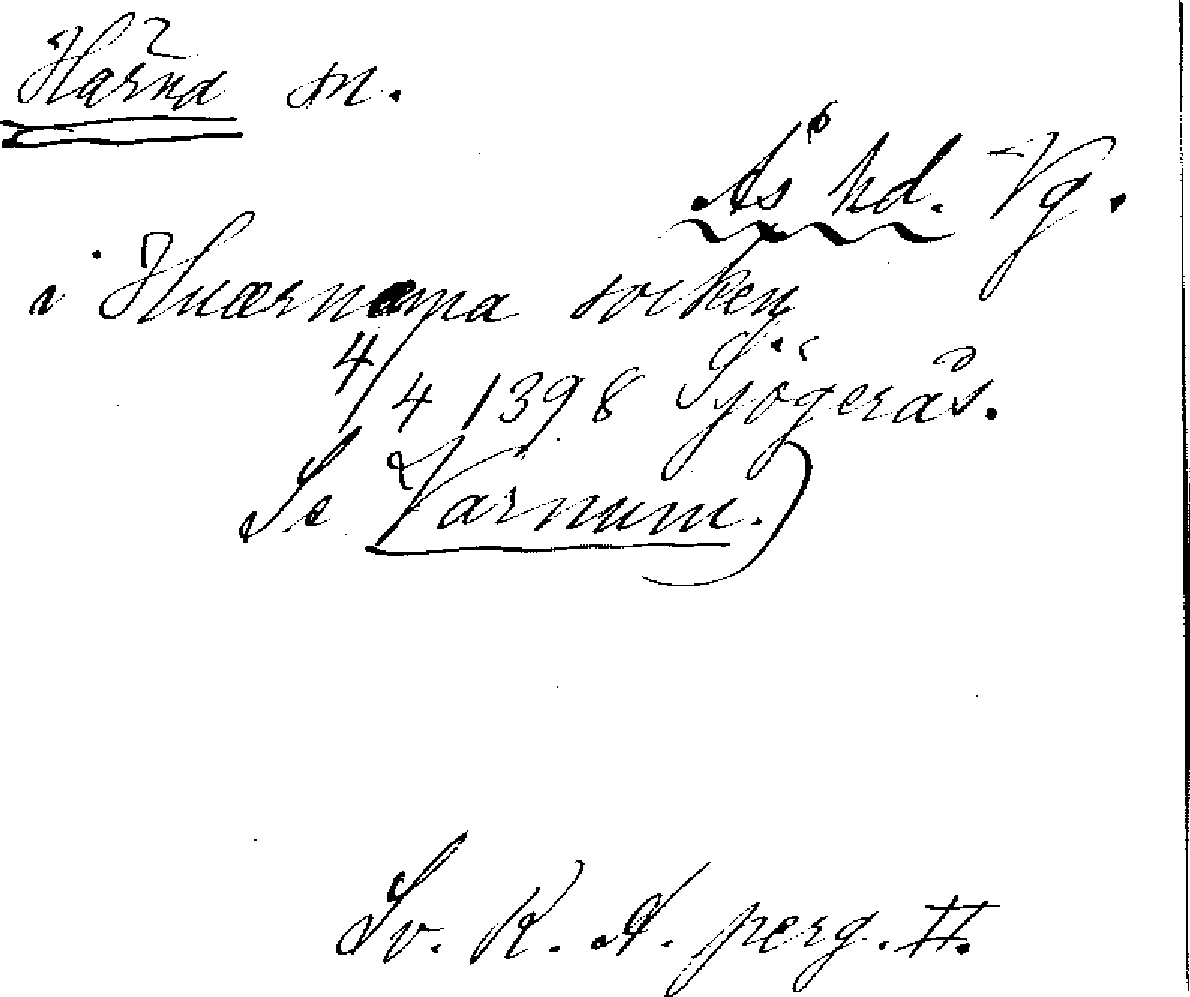 Härna sn.
Ås hd. Vg.
i Huærnæma socken
4/4 1398 Sjögerås.
Se Varnum.)
Sv. R. A. perg. II.